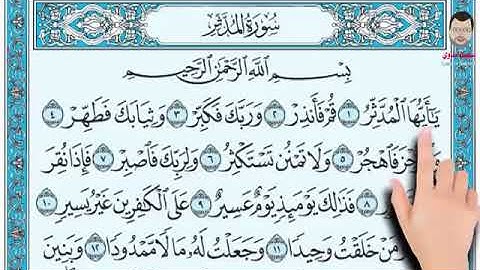 سُورَةُ الْمُدَّثِّرِ
بِسْمِ اللَّهِ الرَّحْمَٰنِ الرَّحِيمِ
يَا أَيُّهَا الْمُدَّثِّرُ ١ قُمْ فَأَنذِرْ ٢ وَرَبَّكَ فَكَبِّرْ ٣ وَثِيَابَكَ فَطَهِّرْ ٤
فَاهْجُرْ ٥ وَلَا تَمْنُن تَسْتَكْثِرُ ٦ وَلِرَبِّكَ فَاصْبِرْ ٧ فَإِذَا نُقِرَ
٨ فَذَٰلِكَ يَوْمَئِذٍ يَوْمٌ عَسِيرٌ ٩ عَلَى الْكَافِرِينَ غَيْرُ يَسِيرٍ ١٠
وَمَنْ خَلَقْتُ وَحِيدًا ١١ وَجَعَلْتُ لَهُ مَالًا مَّمْدُودًا ١٢ وَبَنِينَ